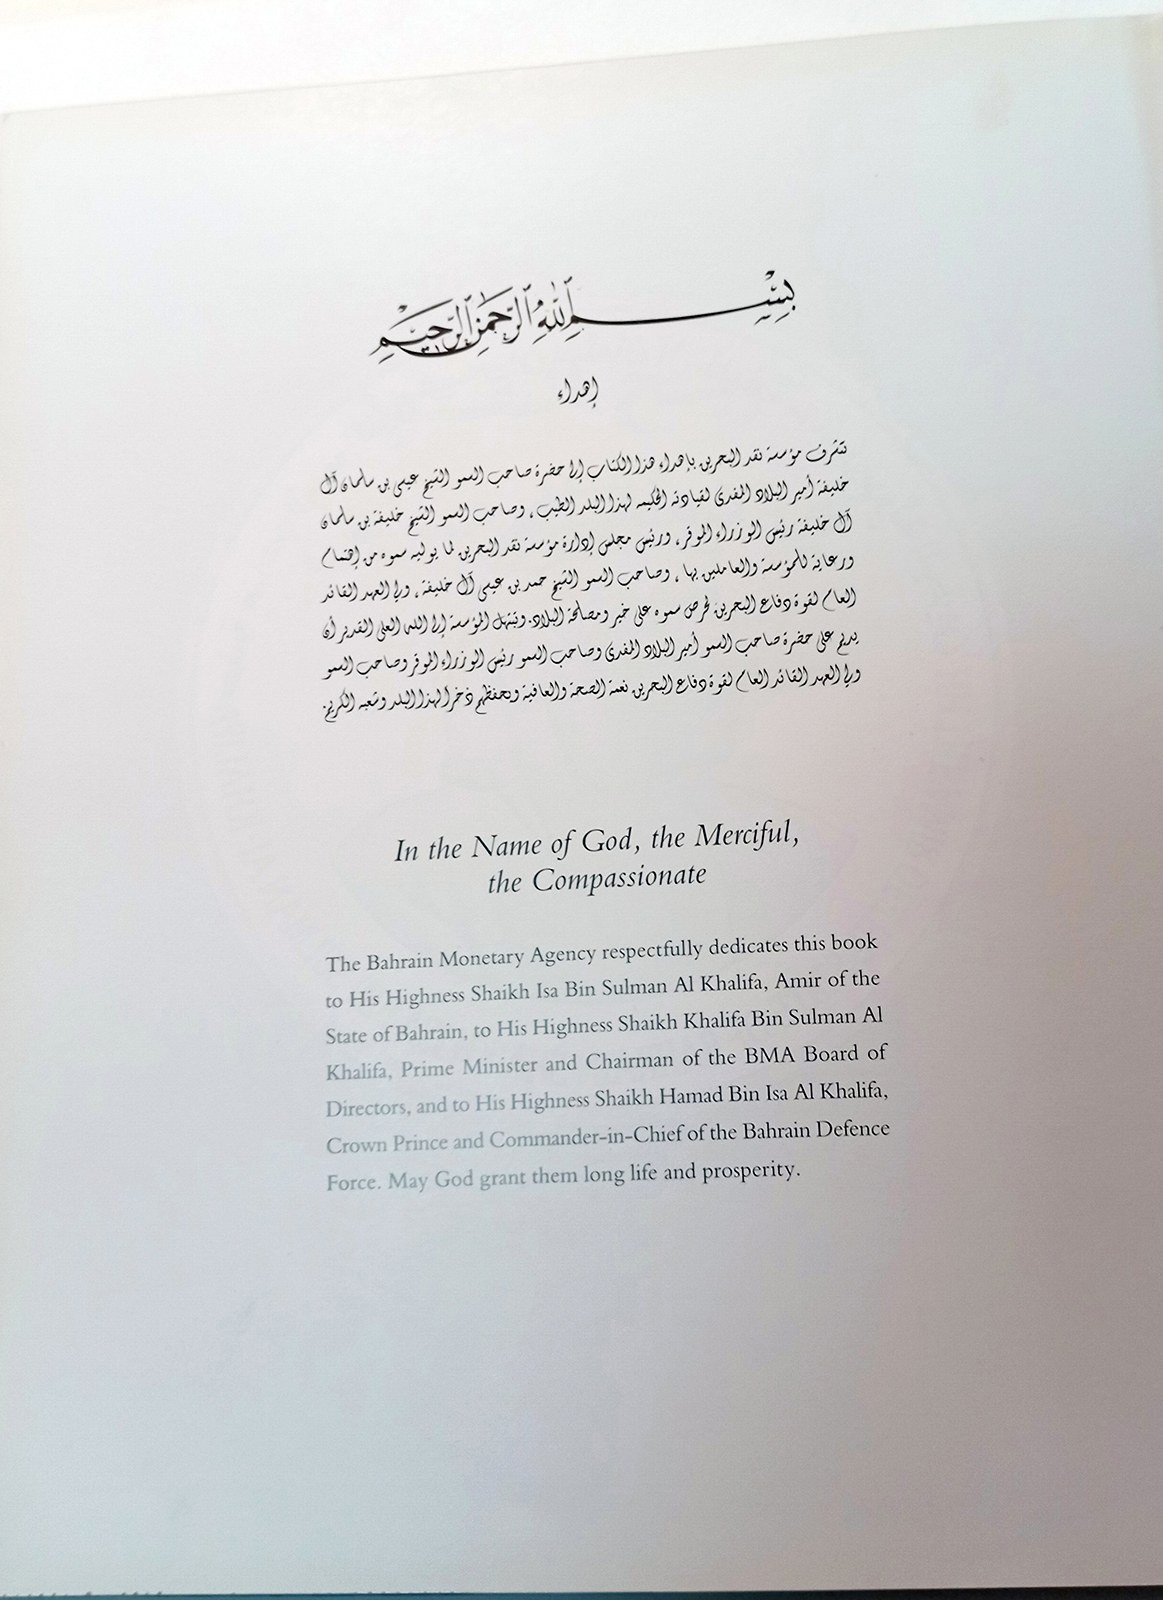 بِسْمِ اللهِ الرَّحْمَنِ الرَّحِيمِ
إهداء
تتشرف مؤسسة نقد البحرين بإهداء هذا الكتاب إلى حضرة صاحب السمو الشيخ عيسى بن سلمان آل
خليفة أمير البلاد المفدى لقيادته الحكيمه لهذا البلد الطيب ، وصاحب السمو الشيخ خليفة بن سلمان
آل خليفة رئيس الوزراء الموقر ، ورئيس مجلس إدارة مؤسسة نقد البحرين لما يوليه سموه من إهتمام
ورعاية للمؤسسة والعاملين بها ، وصاحب السمو الشيخ حمد بن عيسى آل خليفة ، ولي العهد القائد
العام لقوة دفاع البحرين لحرص سموه على خير ومصلحة البلاد. وتبتهل المؤسسة إلى الله العلي القدير أن
يديم على حضرة صاحب السمو أمير البلاد المفدى وصاحب السمو رئيس الوزراء الموقر وصاحب السمو
ولي العهد القائد العام لقوة دفاع البحرين نعمة الصحة والعافية ويحفظهم ذخرا لهذا البلد وشعبه الكريم.
In the Name of God, the Merciful,
the Compassionate
The Bahrain Monetary Agency respectfully dedicates this book
to His Highness Shaikh Isa Bin Sulman Al Khalifa, Amir of the
State of Bahrain, to His Highness Shaikh Khalifa Bin Sulman Al
Khalifa, Prime Minister and Chairman of the BMA Board of
Directors, and to His Highness Shaikh Hamad Bin Isa Al Khalifa,
Crown Prince and Commander-in-Chief of the Bahrain Defence
Force. May God grant them long life and prosperity.